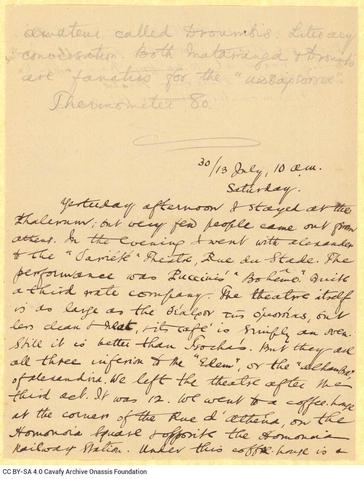 amateur called Droumbis. Literary
conversation. Both Mataranga & Droumbis
are "fanatics" for the
Thermometer 80.
30/13 July, 10 a.m.
Saturday.
Yesterday afternoon I stayed at the
Phalerum; but very few people came out from
Athens. In the evening I went with Alexander
to the Theatre, Rue du Stade. The
performance was Puccini's "Bohême". Quite
a third rate company. The theatre itself
is as large as the
less clean & neat, & its café is simply an oven.
Still it is better than But they are
all three inferior to the "Eden", or the "Alhambra"
of Alexandria. We left the theatre after the
third act. It was 12. We went to a coffee house
at the corner of the Rue d' Athena, on the
Homonoia Square & opposite the Homonoia
Railway Station. Under this coffee house is a
CC BY-SA 4.0 Cavafy Archive Onassis Foundation